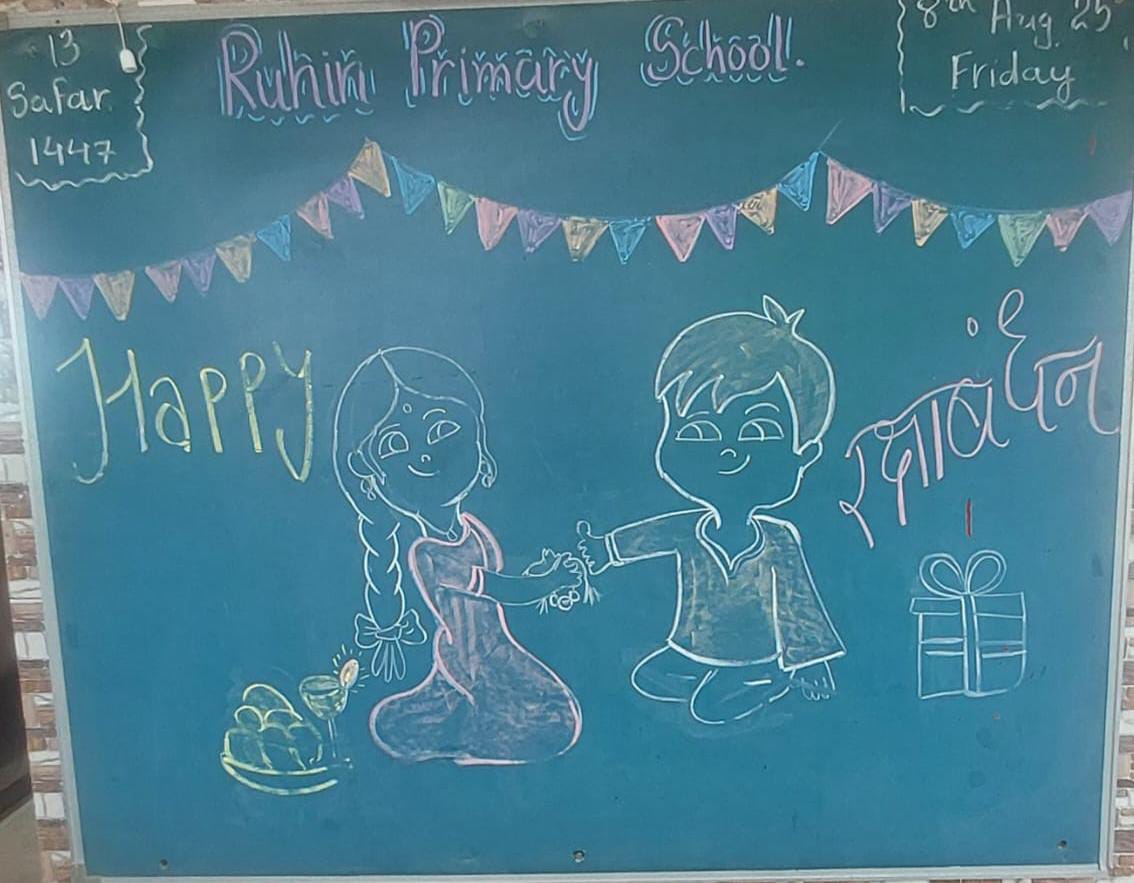 13
Safar
1447
Ruhin Primary School.
8th Aug. 25
Friday
Happy
रक्षाबंधन